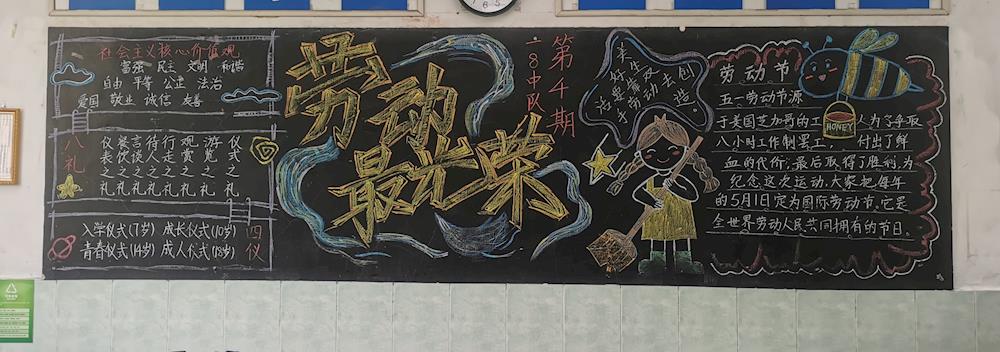 社会主义核心价值观
富强 民主 文明 和谐
自由 平等 公正 法治
爱国 敬业 诚信 友善
八礼
仪表之礼
餐饮之礼
言谈之礼
待人之礼
行走之礼
观赏之礼
游览之礼
仪式之礼
四仪
入学仪式(7岁) 成长仪式(10岁)
青春仪式(14岁) 成人仪式(18岁)
劳动
最光荣
第4期
一8中队
美好生活
要靠双手
劳动去创造
劳动节
五一劳动节源
于美国芝加哥的工人为了争取
八小时工作制罢工, 付出了鲜
血的代价,最后取得了胜利,为
纪念这次运动,大家把每年
的5月1日定为国际劳动节.它是
全世界劳动人民共同拥有的节日.
HONEY